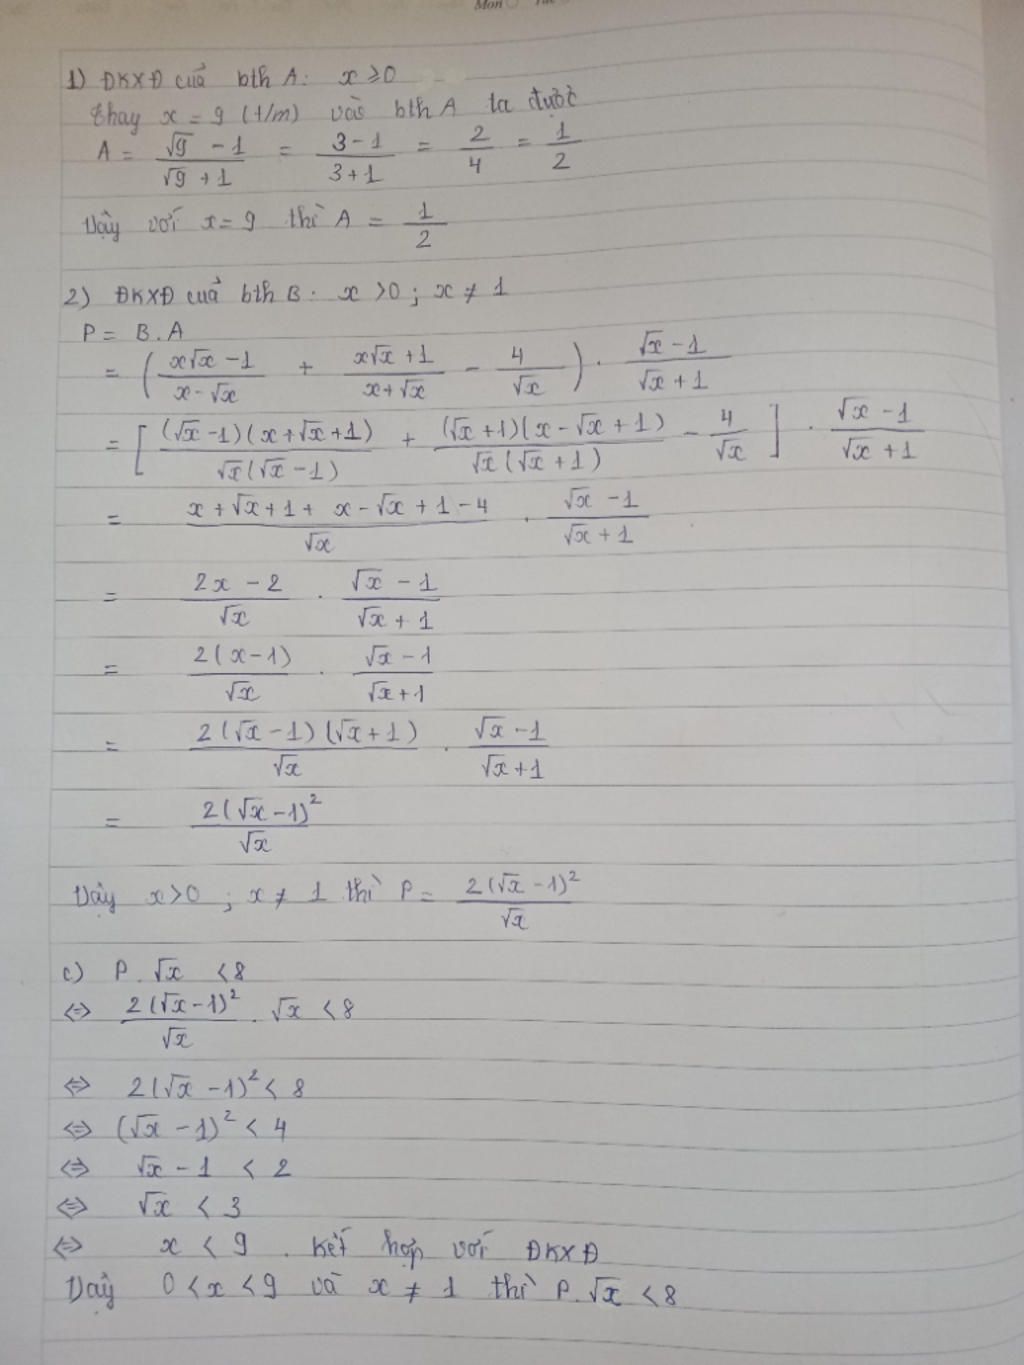 Mon
1) ĐKXĐ của bth A: x ≥ 0
thay x = 9 (t/m) vào bth A ta được
A = (√9 - 1)/(√9 + 1) = (3 - 1)/(3 + 1) = 2/4 = 1/2
Vậy với x = 9 thì A = 1/2
2) ĐKXĐ của bth B: x > 0 ; x ≠ 1
P = B.A
= ((x√x - 1)/(x - √x) + (x√x + 1)/(x + √x) - 4/√x) . (√x - 1)/(√x + 1)
= [((√x - 1)(x + √x + 1))/(√x(√x - 1)) + ((√x + 1)(x - √x + 1))/(√x(√x + 1)) - 4/√x] . (√x - 1)/(√x + 1)
= (x + √x + 1 + x - √x + 1 - 4)/√x . (√x - 1)/(√x + 1)
= (2x - 2)/√x . (√x - 1)/(√x + 1)
= 2(x - 1)/√x . (√x - 1)/(√x + 1)
= 2(√x - 1)(√x + 1)/√x . (√x - 1)/(√x + 1)
= 2(√x - 1)²/√x
Vậy x > 0 ; x ≠ 1 thì P = 2(√x - 1)²/√x
c) P.√x < 8
⇔ 2(√x - 1)²/√x . √x < 8
⇔ 2(√x - 1)² < 8
⇔ (√x - 1)² < 4
⇔ √x - 1 < 2
⇔ √x < 3
⇔ x < 9 . Kết hợp với ĐKXĐ
Vậy 0 < x < 9 và x ≠ 1 thì P.√x < 8